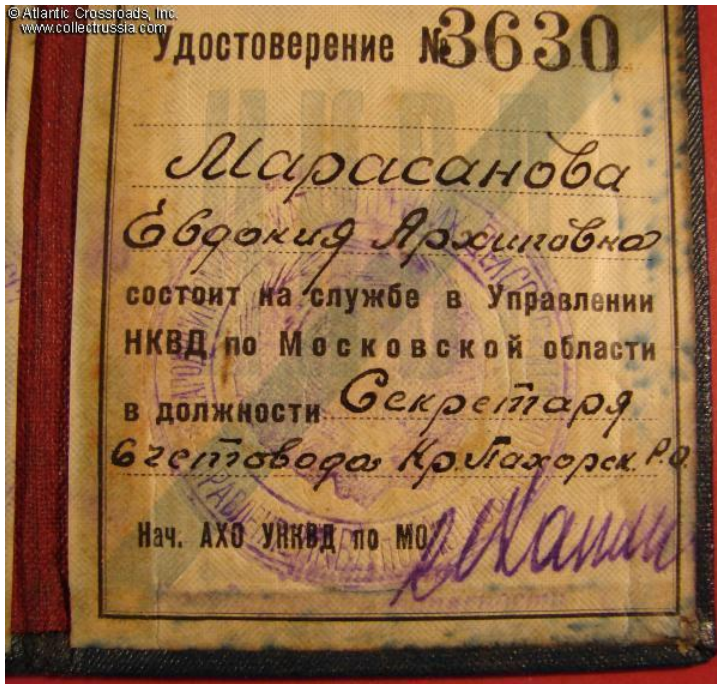 © Atlantic Crossroads, Inc.
www.collectrussia.com
Удостоверение № 3630
Марасанова
Евдокия Архиповна
состоит на службе в Управлении
НКВД по Московской области
в должности Секретаря
Счетовода Кр. Пахорск. Р.О.
Нач. АХО УНКВД по МО